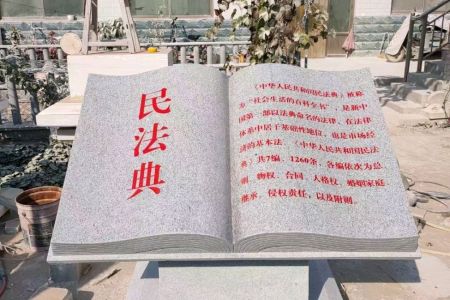 民法典
《中华人民共和国民法典》被称
为“社会生活的百科全书”，是新中
国第一部以法典命名的法律，在法律
体系中居于基础性地位，也是市场经
济的基本法。《中华人民共和国民法
典》共7编、1260条，各编依次为总
则、物权、合同、人格权、婚姻家庭、
继承、侵权责任，以及附则。